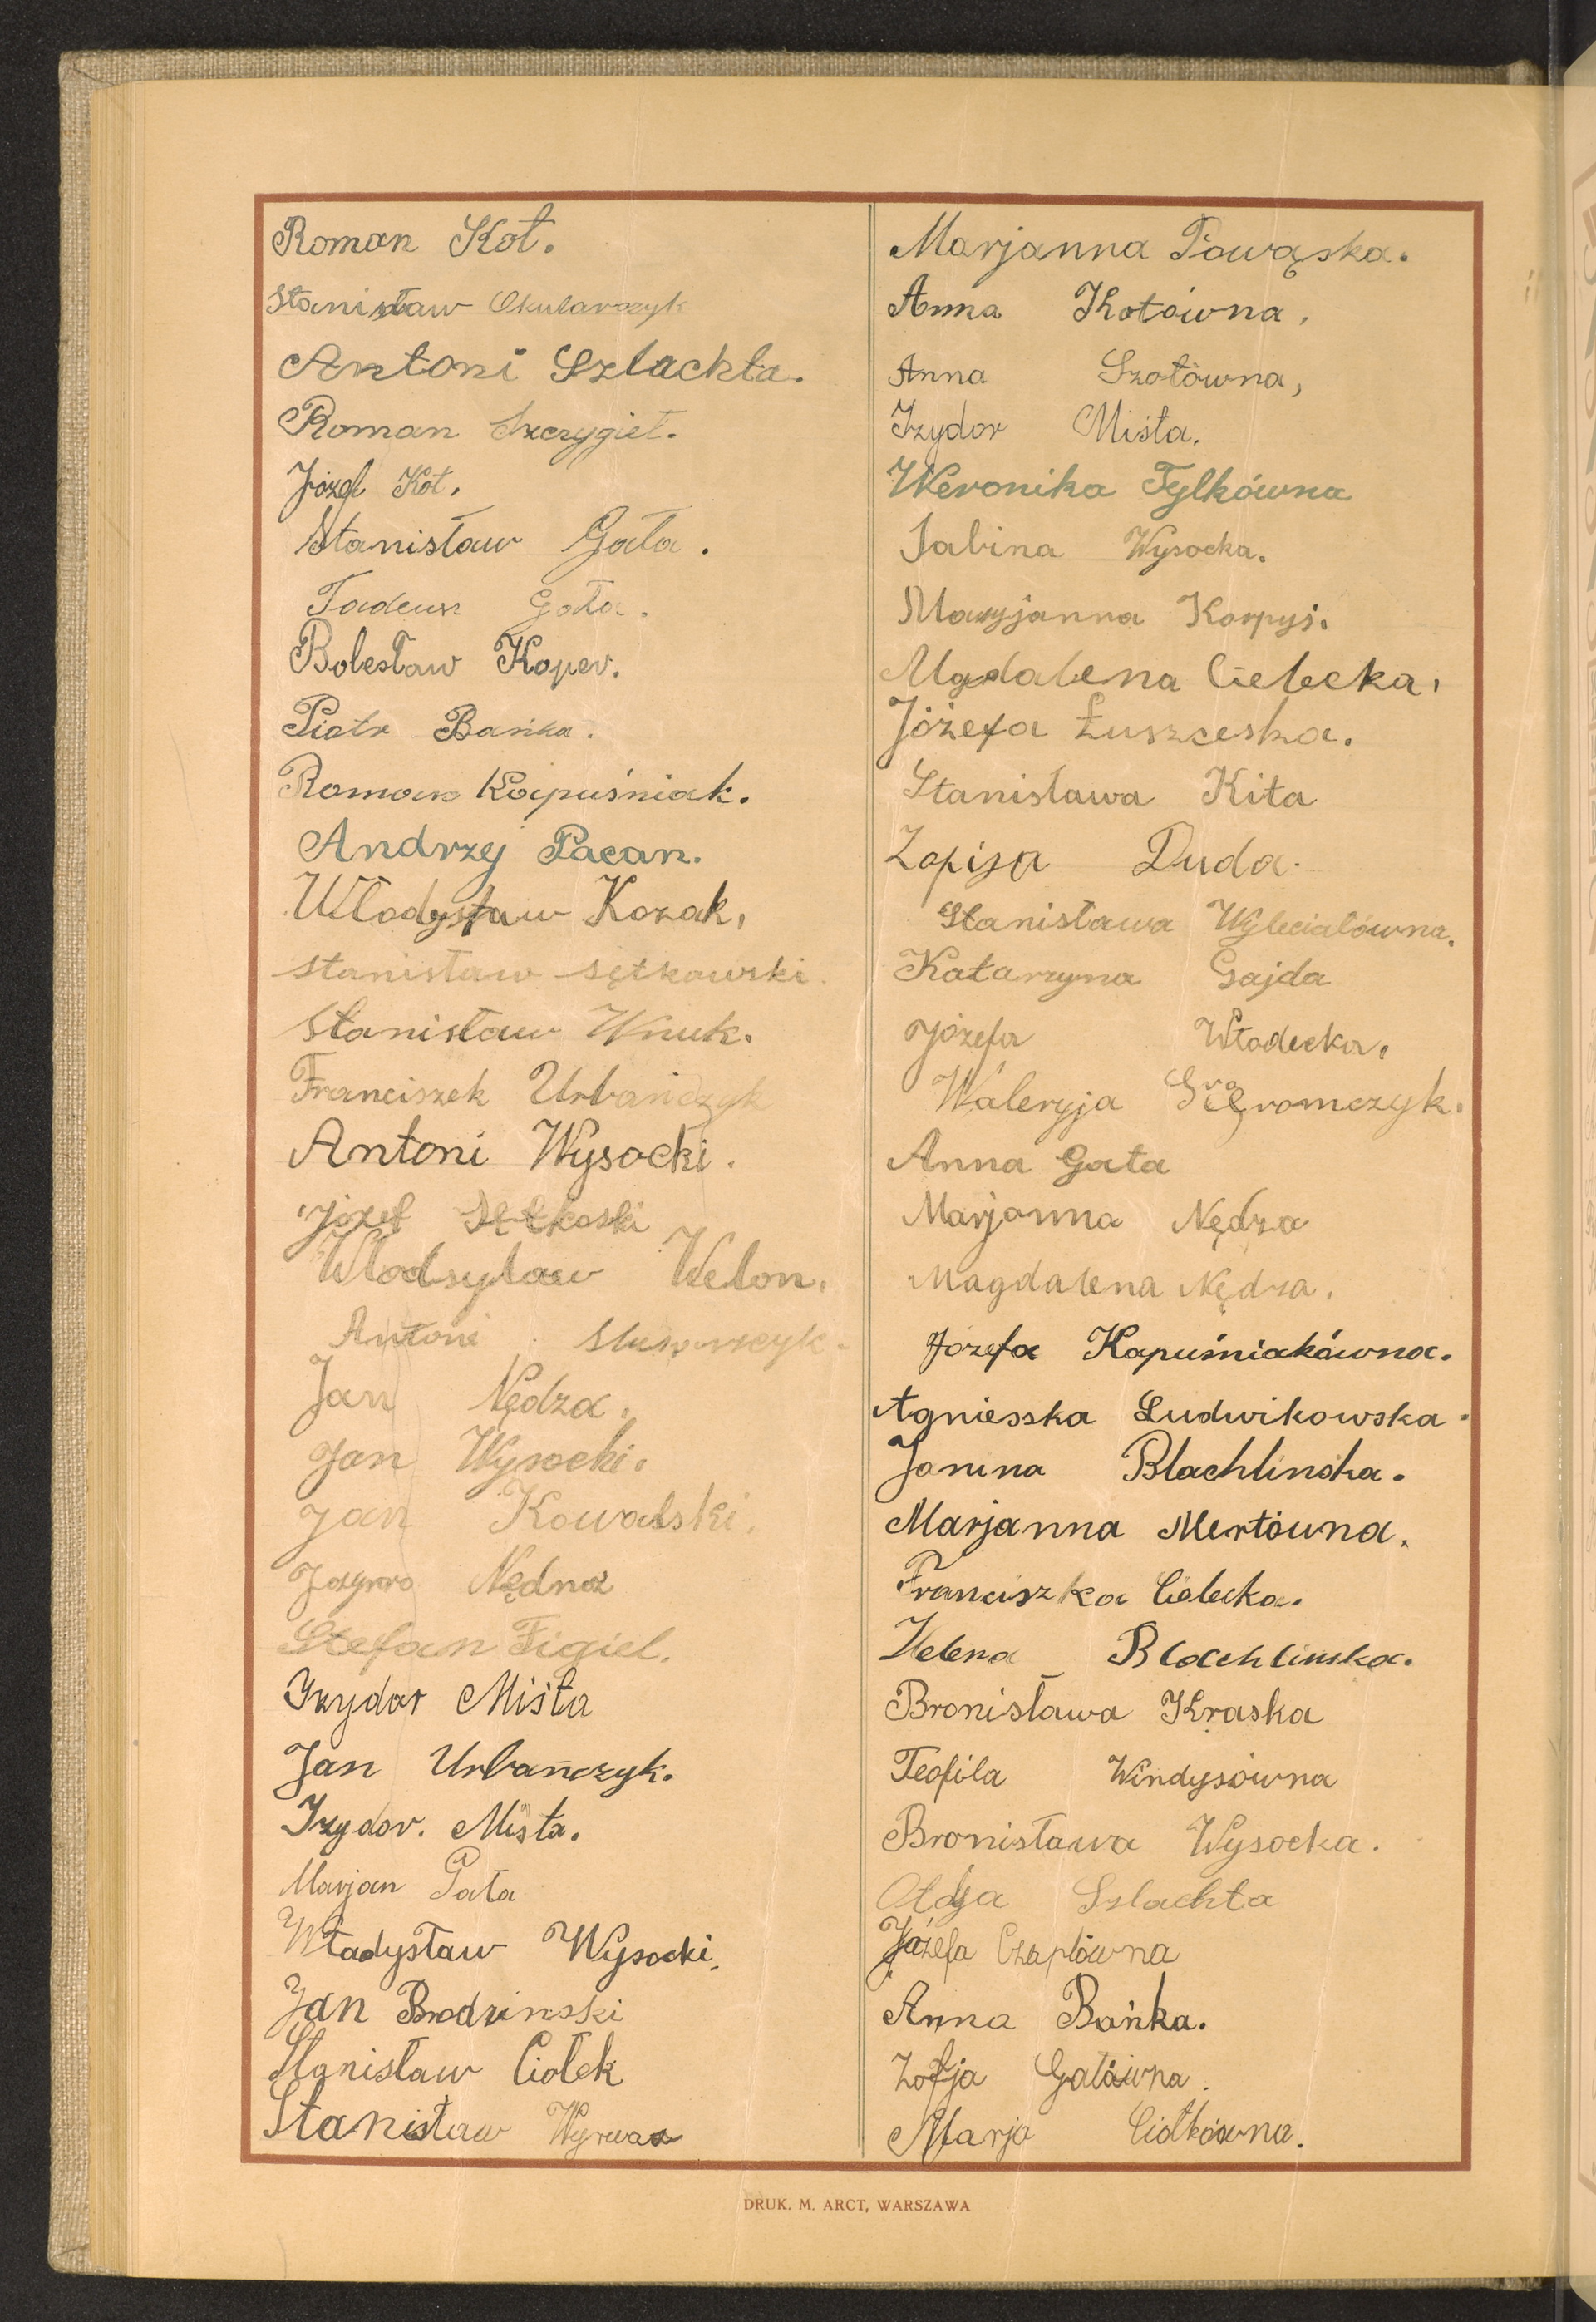 Roman Kot.
Stanisław Okularczyk
Antoni Szlachta.
Roman Szczygieł.
Józef Kot.
Stanisław Gała.
Tadeusz Gała.
Bolesław Koper.
Piotr Bańka.
Roman Kapuśniak.
Andrzej Pacan.
Włodysław Kozak,
Stanisław Sętkowski.
Stanisław Wnuk.
Franciszek Urbańczyk
Antoni Wysocki.
Józef Sętkoski
Włodsyław Welon.
Antoni
Jan Nędza.
Jan Wysocki.
Jan Kowalski.
Nędza
Stefan Figiel.
Izydor Miśta
Jan Urbańczyk.
Izydor. Miśta.
Marjan Gała
Władysław Wysocki.
Jan Brodzinski
Stanisław Ciołek
Stanisław Wyrwas
Marjanna Powąska.
Anna Kotówna,
Anna Szotówna,
Izydor Miśta.
Weronika Tylkówna
Sabina Wysocka.
Maryjanna Korpyś.
Magdalena Cielecka,
Józefa Łuszceska.
Stanisława Kita
Zofija Duda.
Stanisława Wyleciałówna.
Katarzyna Gajda
Józefa Włodecka.
Waleryja
Anna Gała
Marjanna Nędza
Magdalena Nędza.
Józefa Kapuśniakówna.
Agnieszka Ludwikowska.
Janina Blachlinska.
Marjanna Mertówna.
Franciszka Cielecka.
Helena Blachlinska.
Bronisława Kraska
Teofila Windysówna
Bronisława Wysocka.
Szlachta
Józefa Czaplówna
Anna Bańka.
Zofja Gałówna.
Marja Ciołkówna.
DRUK. M. ARCT, WARSZAWA